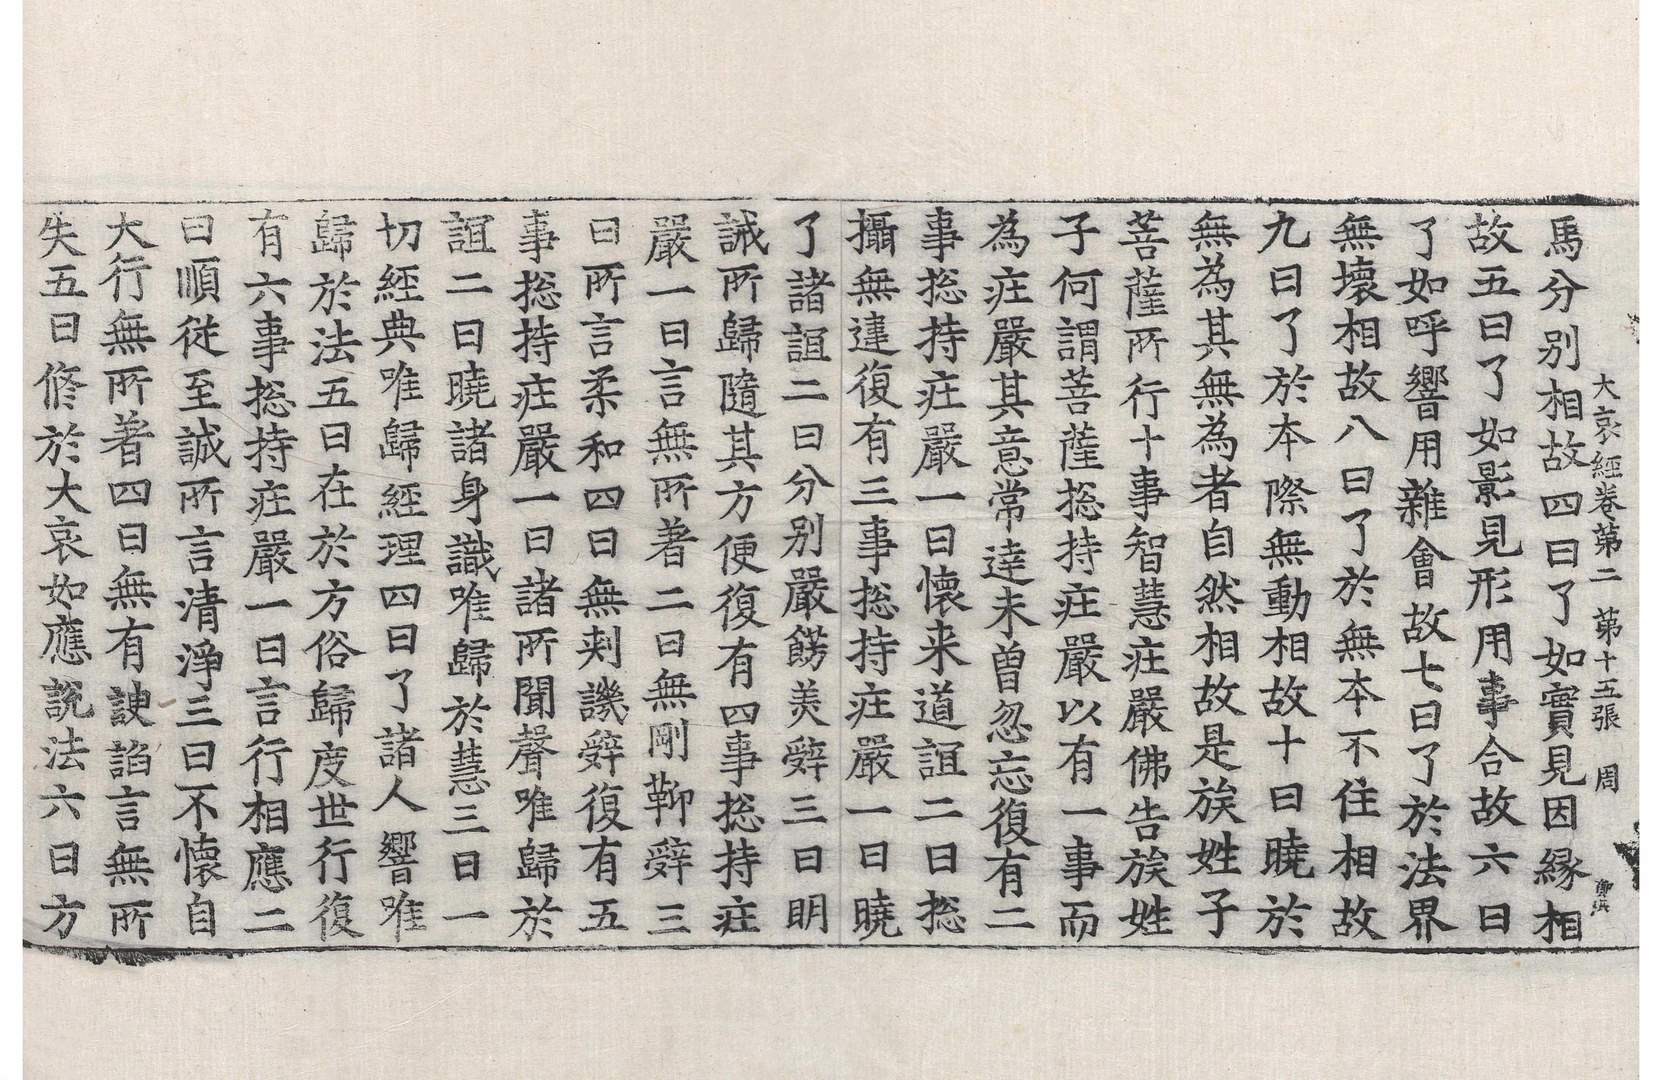 大哀經卷第二 第十五張 周
馬分別相故四曰了如實見因緣相
故五曰了如影見形用事合故六曰
了如呼響用雜會故七曰了於法界
無壞相故八曰了於無本不住相故
九曰了於本際無動相故十曰曉於
無為其無為者自然相故是族姓子
菩薩所行十事智慧莊嚴佛告族姓
子何謂菩薩揔持莊嚴以有一事而
為莊嚴其意常達未曾忽忘復有二
事揔持莊嚴一曰懷来道誼二曰揔
攝無違復有三事揔持莊嚴一曰曉
了諸誼二曰分別嚴餝美辤三曰明
誡所歸隨其方便復有四事揔持莊
嚴一曰言無所著二曰無剛鞕辤三
曰所言柔和四曰無刾譏辤復有五
事揔持莊嚴一曰諸所聞聲唯歸於
誼二曰曉諸身識唯歸於慧三曰一
切經典唯歸經理四曰了諸人響唯
歸於法五曰在於方俗歸度世行復
有六事揔持莊嚴一曰言行相應二
曰順從至誠所言清淨三曰不懷自
大行無所著四曰無有諛諂言無所
失五曰修於大哀如應說法六曰方